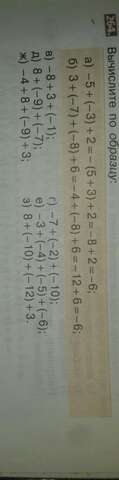 264. Вычислите по образцу:
а) −5 + (−3) + 2 = −(5 + 3) + 2 = −8 + 2 = −6;
б) 3 + (−7) + (−8) + 6 = −4 + (−8) + 6 = −12 + 6 = −6;
в) −8 + 3 + (−1);
г) −7 + (−2) + (−10);
д) 8 + (−9) + (−7);
е) −3 + (−4) + (−5) + (−6);
ж) −4 + 8 + (−9) + 3;
з) 8 + (−10) + (−12) + 3.